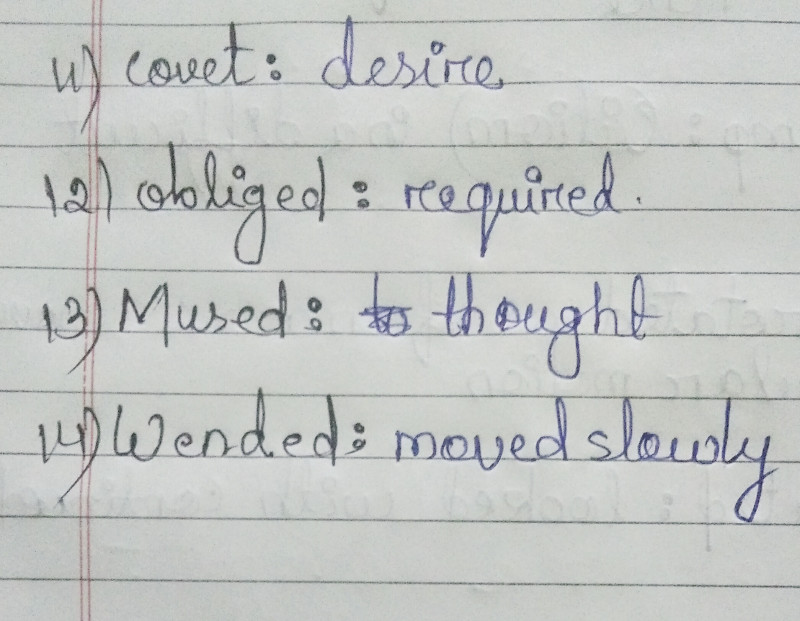 11) covet: desire
12) obliged: required.
13) Mused: thought
14) Wended: moved slowly